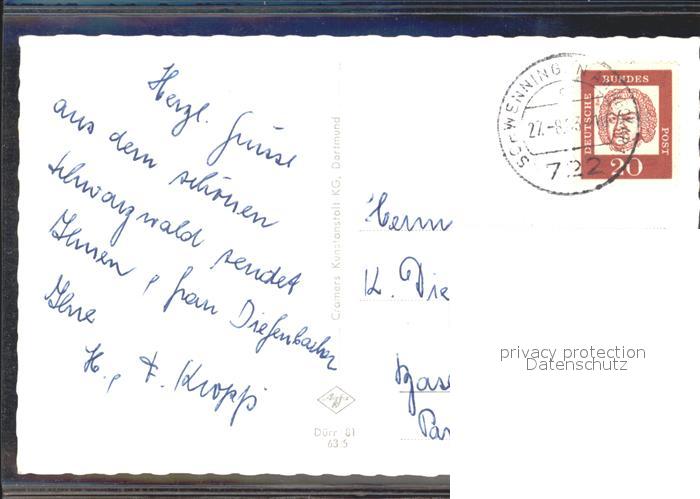 Herzl. Grüsse
aus dem schönen
Schwarzwald sendet
Ihnen, Frau Diefenbacher
Ihre
H., F. Kropp
Cramers Kunstanstalt KG, Dortmund
Dürr 81
63:5
SCHWENNING
722
DEUTSCHE
BUNDES
POST
20
Herrn
K. Die
privacy protection
Datenschutz